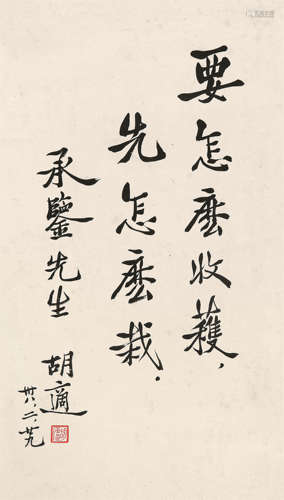 要怎麽收穫，
先怎麽栽．
承鑒先生
胡適
卅八．二．廿九